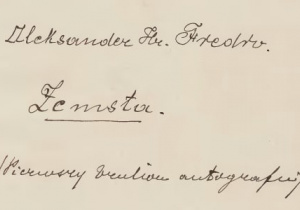 Aleksander Hr. Fredro.
Zemsta.
(Pierwszy brulion autografu